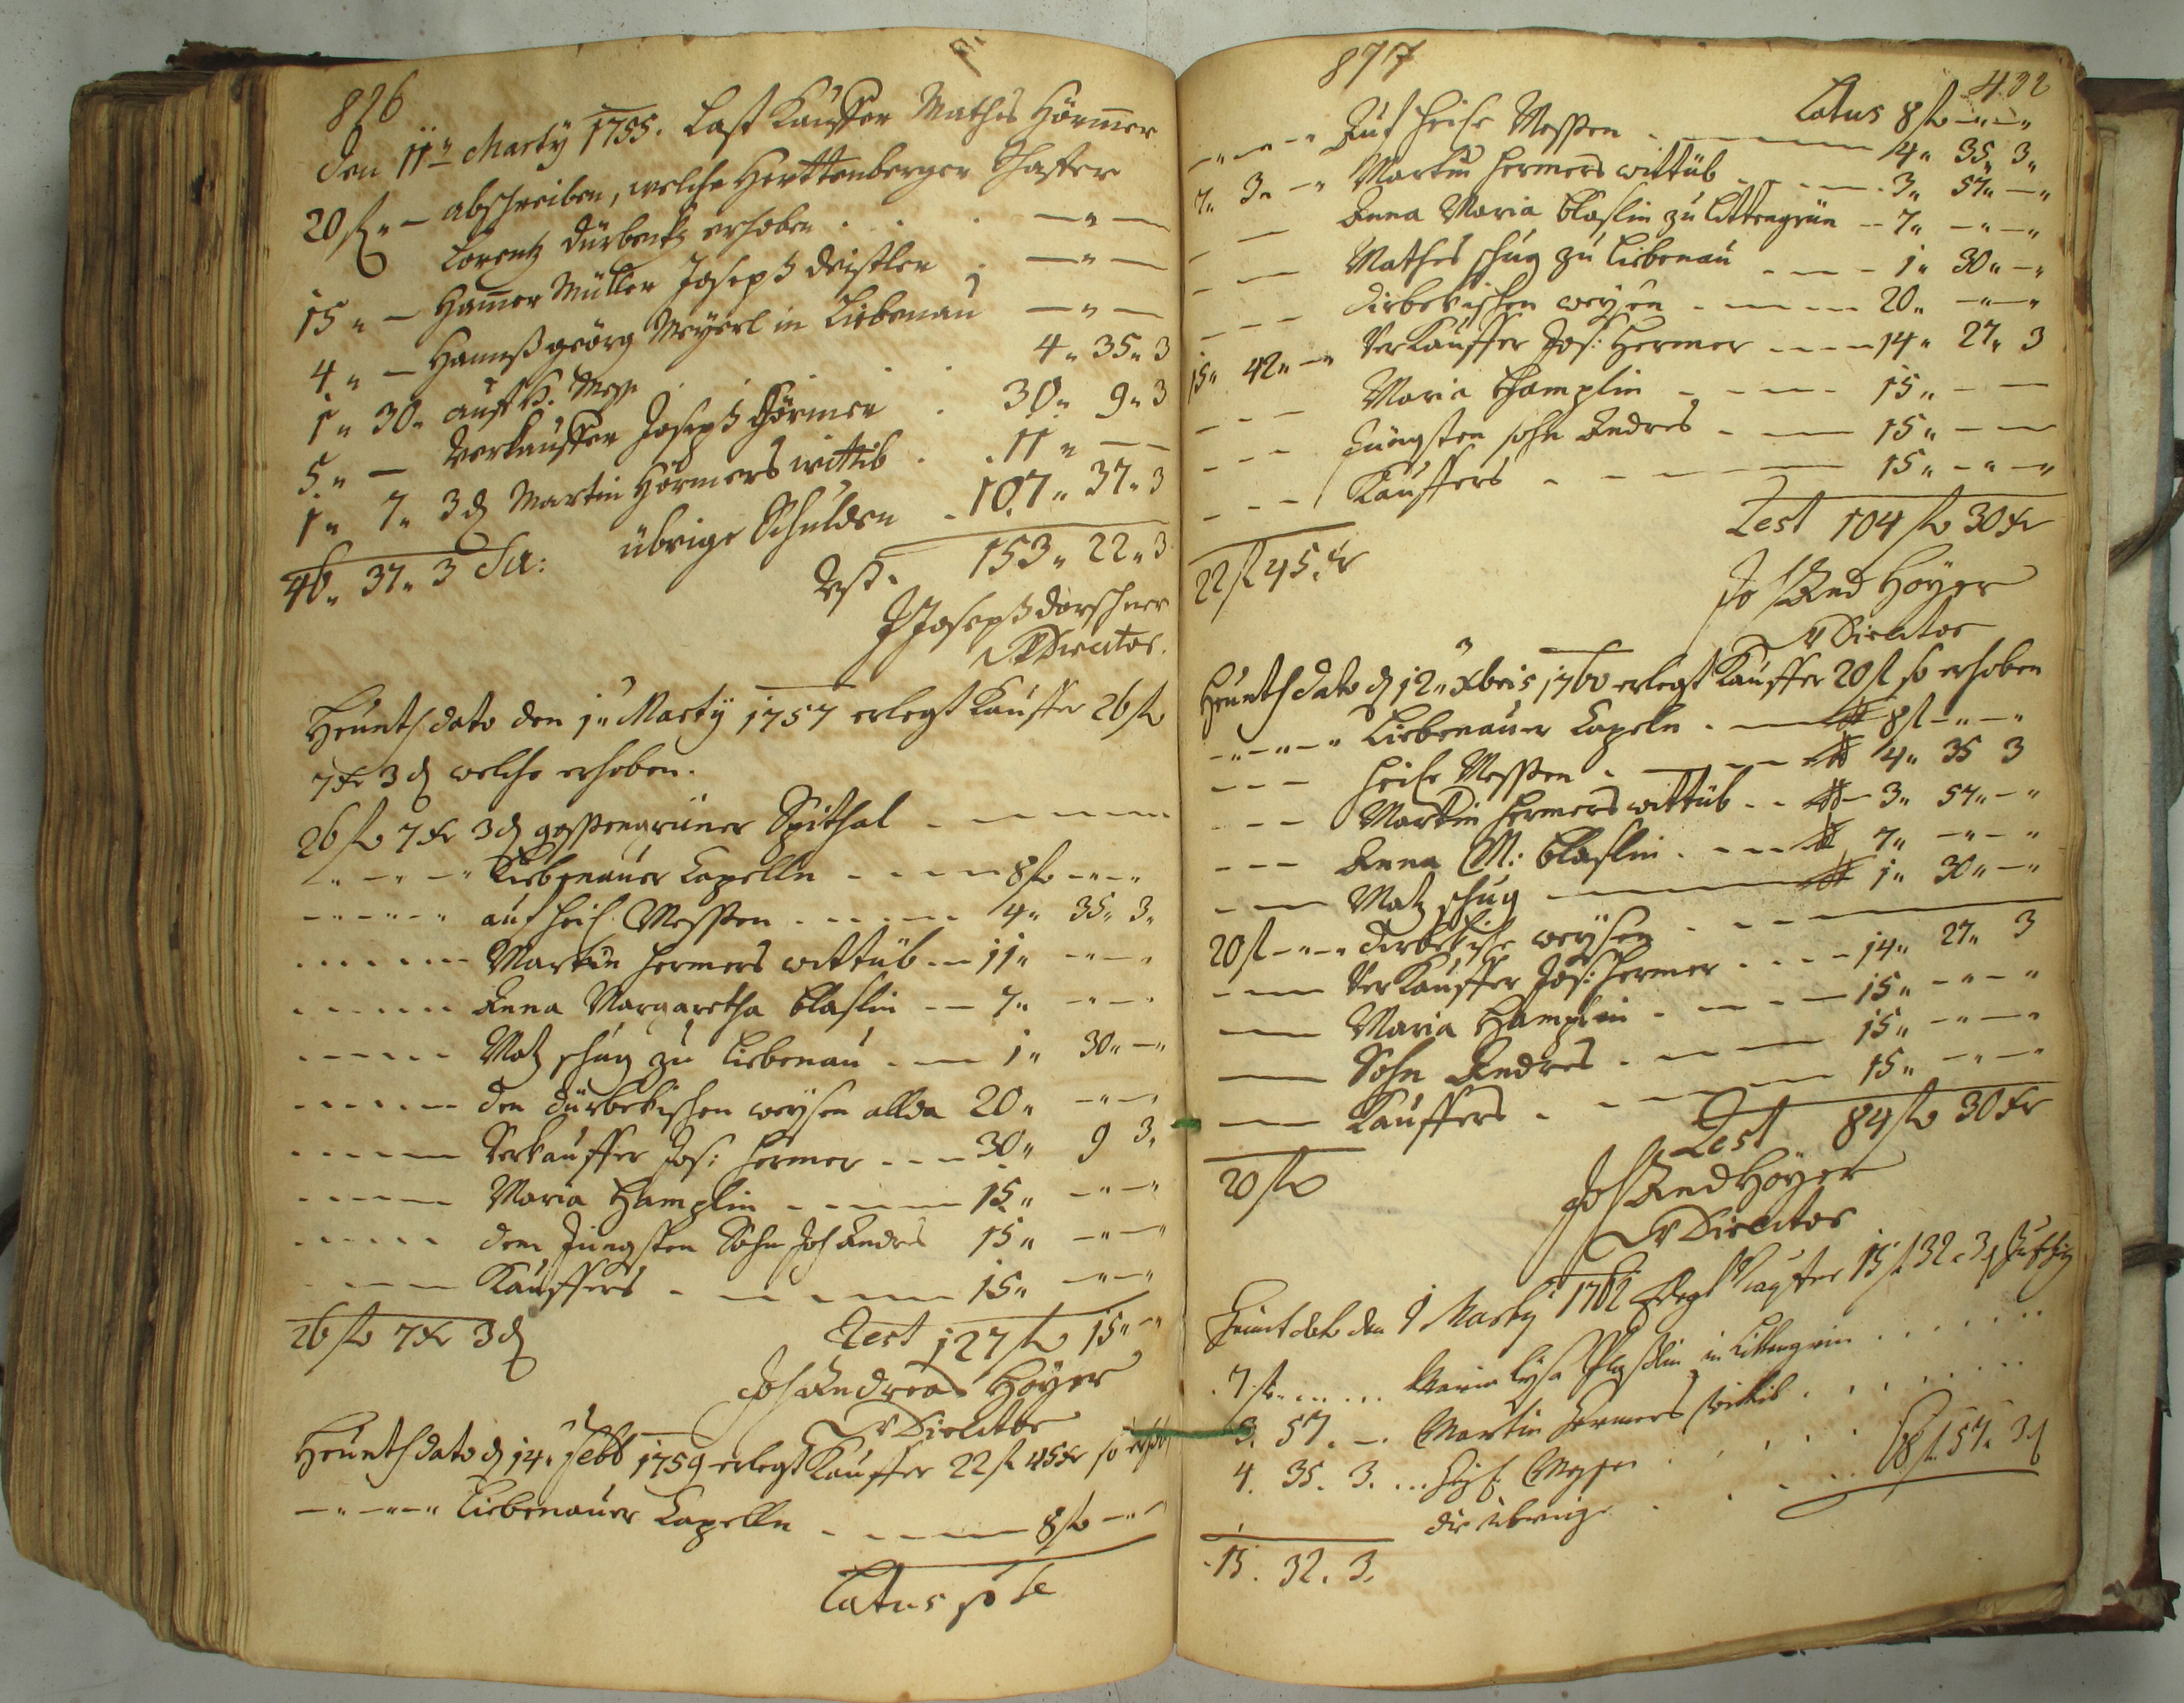 826
Den 11ten Marty 1755. Last Kauffer Mathes Hörmer
20 fl „ — abschreiben, welche Herttenberger Schaffer
Lorentz Dürbeckh erhoben . . . — „ —
15 „ — Hamer Müller Joseph Deistler . — „ —
4 „ — Hannß georg Meyerl in Liebenau — „ —
1 „ 30 „ auf H. Mess . . . 4 „ 35 „ 3
5 „ — Verkauffer Joseph Hörmer . 30 „ 9 „ 3
1 „ 7 „ 3 d Martin Hörmers wittib . . 11 „ — —
übrige Schulden . 107 „ 37 „ 3
46 „ 37 „ 3 Sa:
Rest. 153 „ 22 „ 3
Joseph Dorschner
Director.
Heunth dato den 1 „ Marty 1757 erlegt Kauffer 26 fl
7 xr 3 d welche erhoben.
26 fl 7 xr 3 d gossengrüner Spithal - — — — —
„ — „ — „ Liebenauer Capelln - - — — 8 fl - „ - „
- - „ - „ - „ auf heil. Messen . - . - — 4 „ 35 „ 3 „
. . . . . — Martin Hermers wittüb - - 11 „ - „ - „
. . . . . . Anna Margaretha Blaslin - — 7 „ - „ - „
. - - - - - Matz Schug zu Liebenau - — 1 „ 30 „ - „
- - . - . - — den dürbekischen weysen allda 20 „ - „ -
. - - - . — Verkauffer Jos: Hermer - - - 30 „ 9 3 „
. - - - - — Maria Hamplin - - - — — 15 „ - „ - „
. - - - - . dem Jüngsten Sohn Joh Andres 15 „ - „ - „
- — — Kauffers . — — — — 15 „ — „ — „
26 fl 7 xr 3 d
Rest 127 fl 15 „ - „
Joh Andreas Hoyer
Director
Heunth dato d 14. Febb 1759 erlegt Kauffer 22 fl 45 xr so erhob
— „ — „ — „ Liebenauer Capelln - - — — 8 fl - „ -
Latus
877
432
Latus 8 fl - „ - „
- „ - „ - „ Auf heil. Messen - — — — 4 „ 35 „ 3 „
7 „ 3 „ - „ Martin Hermers wittüb - - - — . 3 „ 57 „ - „
- — Anna Maria Blaslin zu Littengrün - - 7 „ - „ - „
- — Mathes Schug zu Liebenau - - — - 1 „ 30 „ - „
- - — Dirbekischen weysen - — — — 20 „ - „ - „
15 „ 42 „ - „ Verkauffer Jos: Hermer - - — — 14 „ 27 „ 3
- - — Maria Hamplin - - — — 15 „ - —
- - — Jüngsten sohn Andres - - — 15 „ - —
- - — Kauffers - - — — 15 „ - „ - „
22 fl 45 xr
Rest 104 fl 30 xr
Jo And Hoyer
Director
Heunth dato d 12 „ Xbris 1760 erlegt Kauffer 20 fl so erhoben
- „ - „ - „ Liebenauer Capeln . — — 8 fl - „ - „
- - - heil. Messen - — — 4 „ 35 3
- - - Martin Hermers wittüb . . — 3 „ 57 „ - „
- - — Anna M: Blaslin . - - — 7 „ - „ - „
- - — Matz Schug — — — 1 „ 30 „ - „
20 fl - „ - „ Dirbekische weysen . - - —
- — — Verkauffer Jos: Hermer . - - - 14 „ 27 „ 3
— — Maria Hamplin - — - — 15 „ - „ - „
— — Sohn Andres - - — — 15 „ - „ - „
— — Kauffers - - - — — 15 „ - „ - „
20 fl
Rest 84 fl 30 xr
Joh And Hoyer
Director
Heunt dato den 9 Marty 1762 Erlegt Kauffer 15 fl 32. 3 d
7 fl . . . . . . Maria Blaslin in Littengrün . . . . . .
3. 57. — . Martin Hermers Wittib . . . . . .
4. 35. 3. . . . Heil. Messen . . . .
die übrige . . . . . 68 fl 57. 3 d
15. 32. 3.